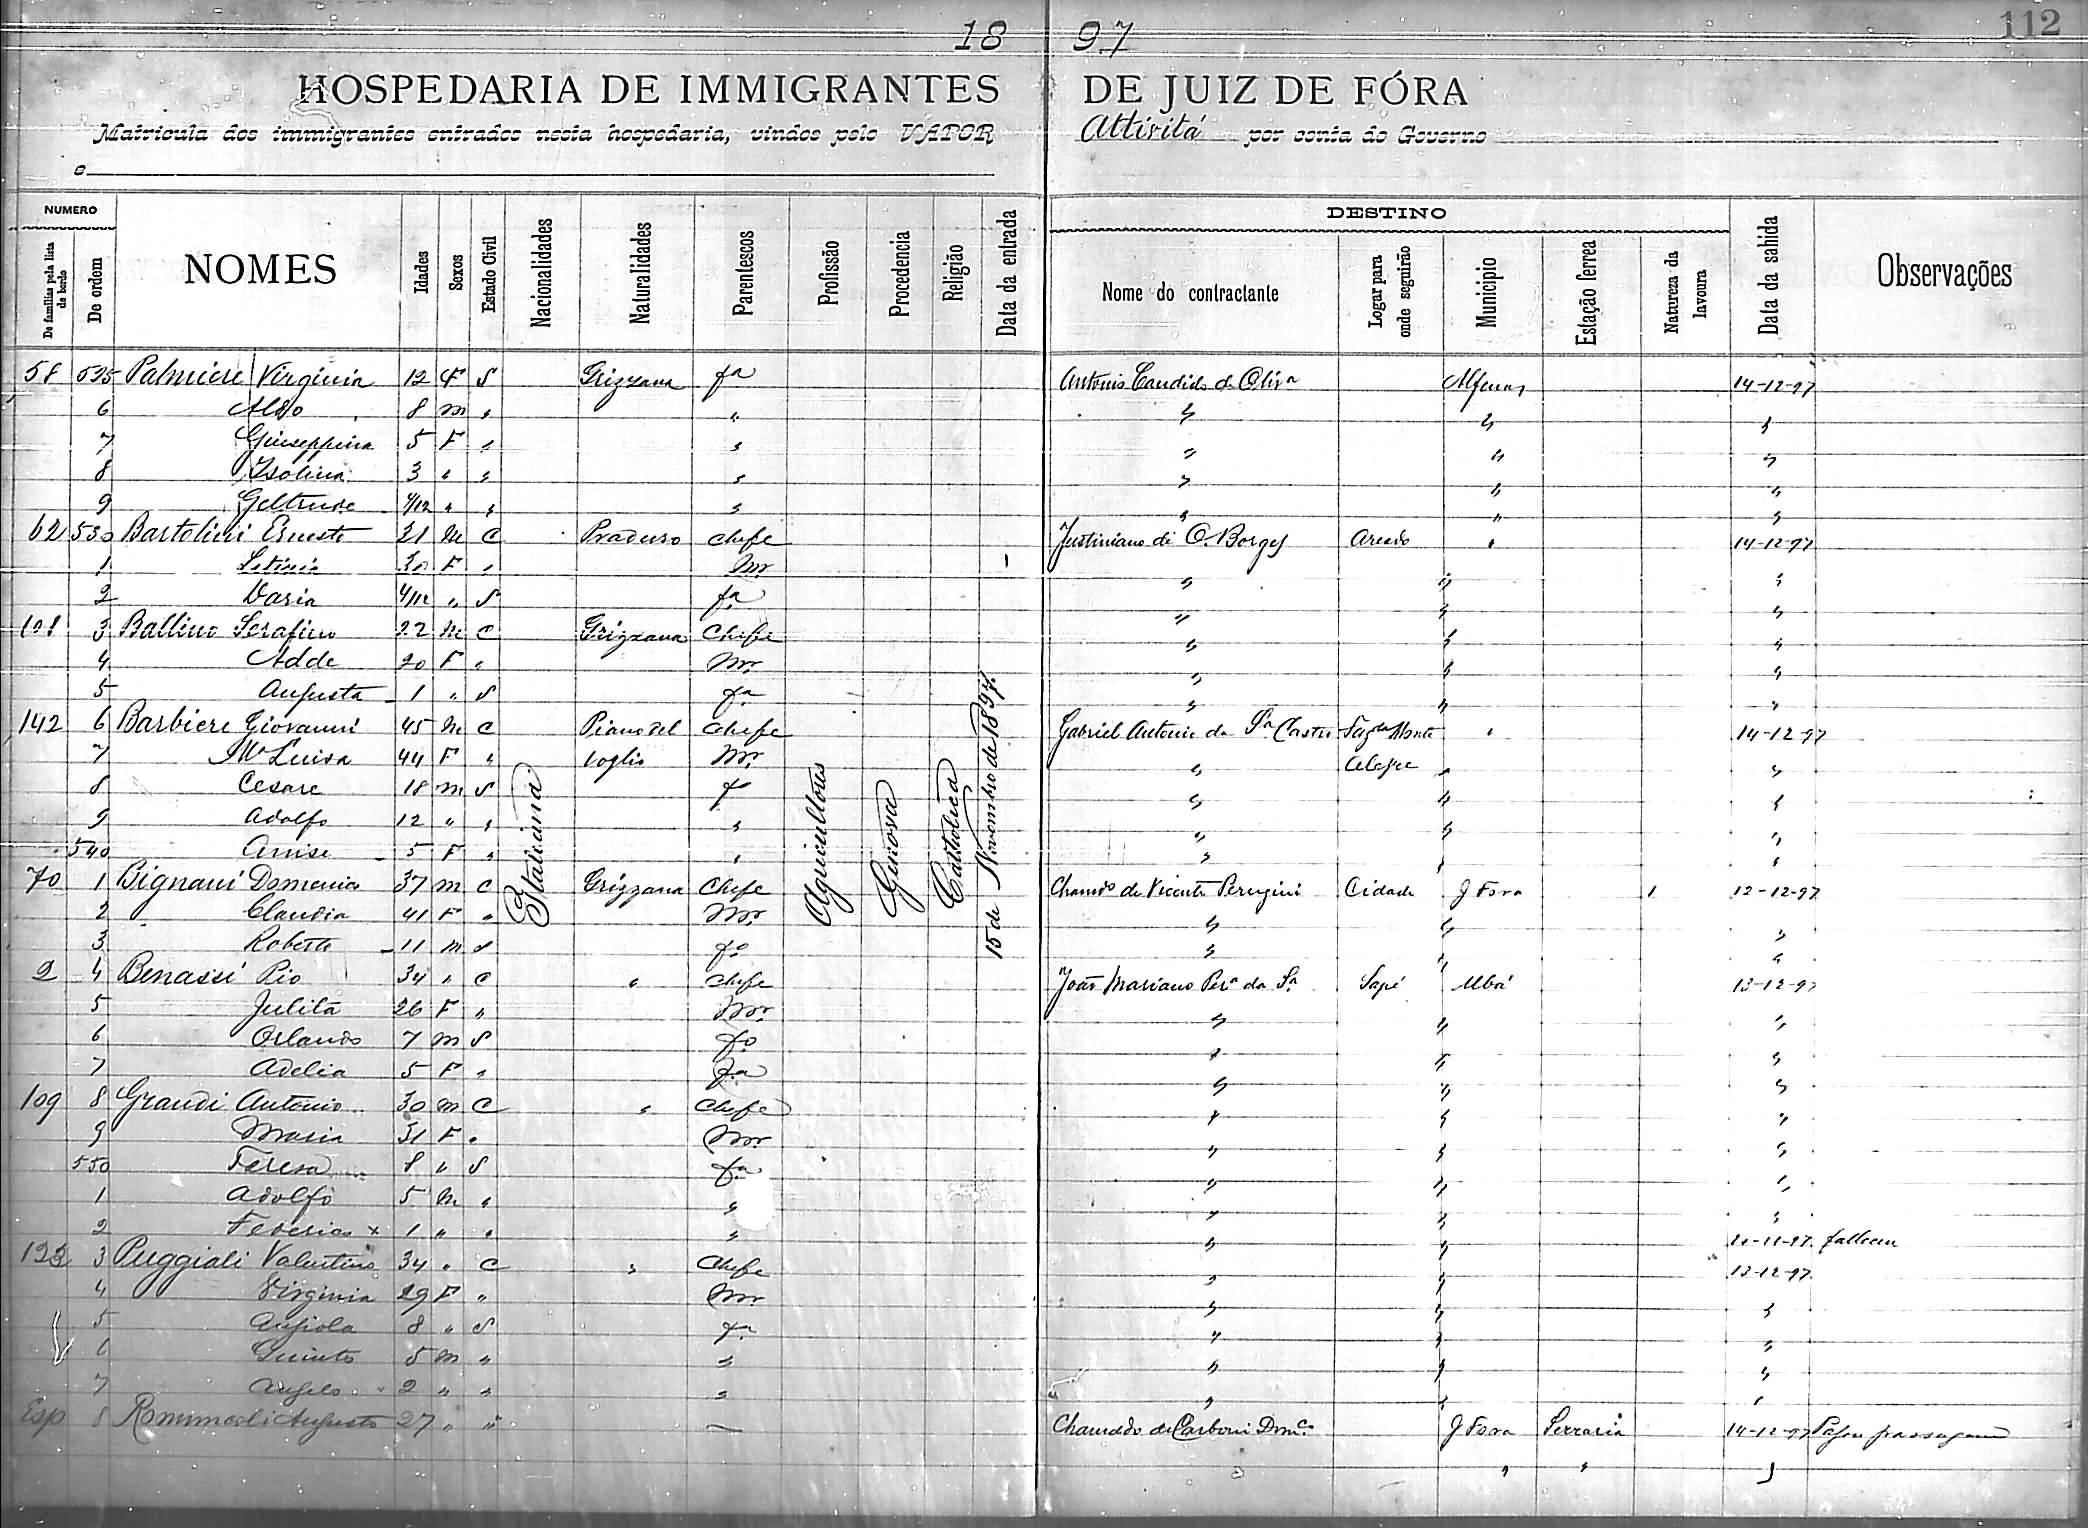 112
18 97
HOSPEDARIA DE IMMIGRANTES DE JUIZ DE FÓRA
Matricula dos immigrantes entrados nesta hospedaria, vindos pelo VAPOR Attivitá por conta do Governo
e
NUMERO
De familias pela lista de bordo
De ordem
NOMES
Idades
Sexos
Estado Civil
Nacionalidades
Naturalidades
Parentescos
Profissão
Procedencia
Religião
Data da entrada
DESTINO
Nome do contractante
Logar para onde seguirão
Municipio
Estação ferrea
Natureza da lavoura
Data da sahida
Observações
Italiana
Agricultores
Genova
Catholica
15 de Novembro de 1897
58 525 Palmiere Virginia 12 F S Grizzana fa Antonio Candido de Oliva Alfenas 14-12-97
6 Aldo 8 m " " " " "
7 Giuseppina 5 F " " " " "
8 Isolina 3 " " " " " "
9 Geltrude 4/12 " " " " " "
62 530 Bartolini Ernesto 31 M C Praduro chefe Justiniano di O. Borges Areado " 14-12-97
1 Letizia 30 F " Mr " " "
2 Daria 4/12 " S fa " " "
108 3 Ballino Serafino 22 M C Grizzana Chefe " " "
4 Adde 20 F " Mr " " "
5 Augusta 1 " S fa " " "
142 6 Barbiere Giovanni 45 M C Piano del Chefe Gabriel Antonio da Sa Castro Sagdo Monte " 14-12-97
7 Ma Luisa 44 F " Voglio Mr " Alegre " "
8 Cesare 18 m S f " " "
9 Adolfo 12 " " " " " "
540 Anise 5 F " " " " "
70 1 Bignani Domenico 37 m C Grizzana Chefe Chamdo de Vicente Perugini Cidade J Fora 12-12-97
2 Claudia 41 F " Mr " " "
3 Roberto 11 m S fo " " "
2 4 Benassi Pio 34 " C " Chefe João Mariano Pera da Sa Sapé Ubá 13-12-97
5 Julita 26 F " Mr " " "
6 Orlando 7 m S fo " " "
7 Adelia 5 F " fa " " "
109 8 Grandi Antonio 30 m C " Chefe " " "
9 Maria 31 F " Mr " " "
550 Teresa 8 " S fa " " "
1 Adolfo 5 m " " " " "
2 Federico x 1 " " " " "  falleceu
123 3 Puggioli Valentino 34 " C " Chefe " " 13-12-97
4 Virginia 29 F " Mr " " "
5 Angiola 8 " S fa " " "
6 Quinto 5 m " " " " "
7 Angelo 2 " " " " " "
Esp 8 Augusto 27 " " — Chamado de Carboni Domco J Fora Serraria 14-12-97
" " "